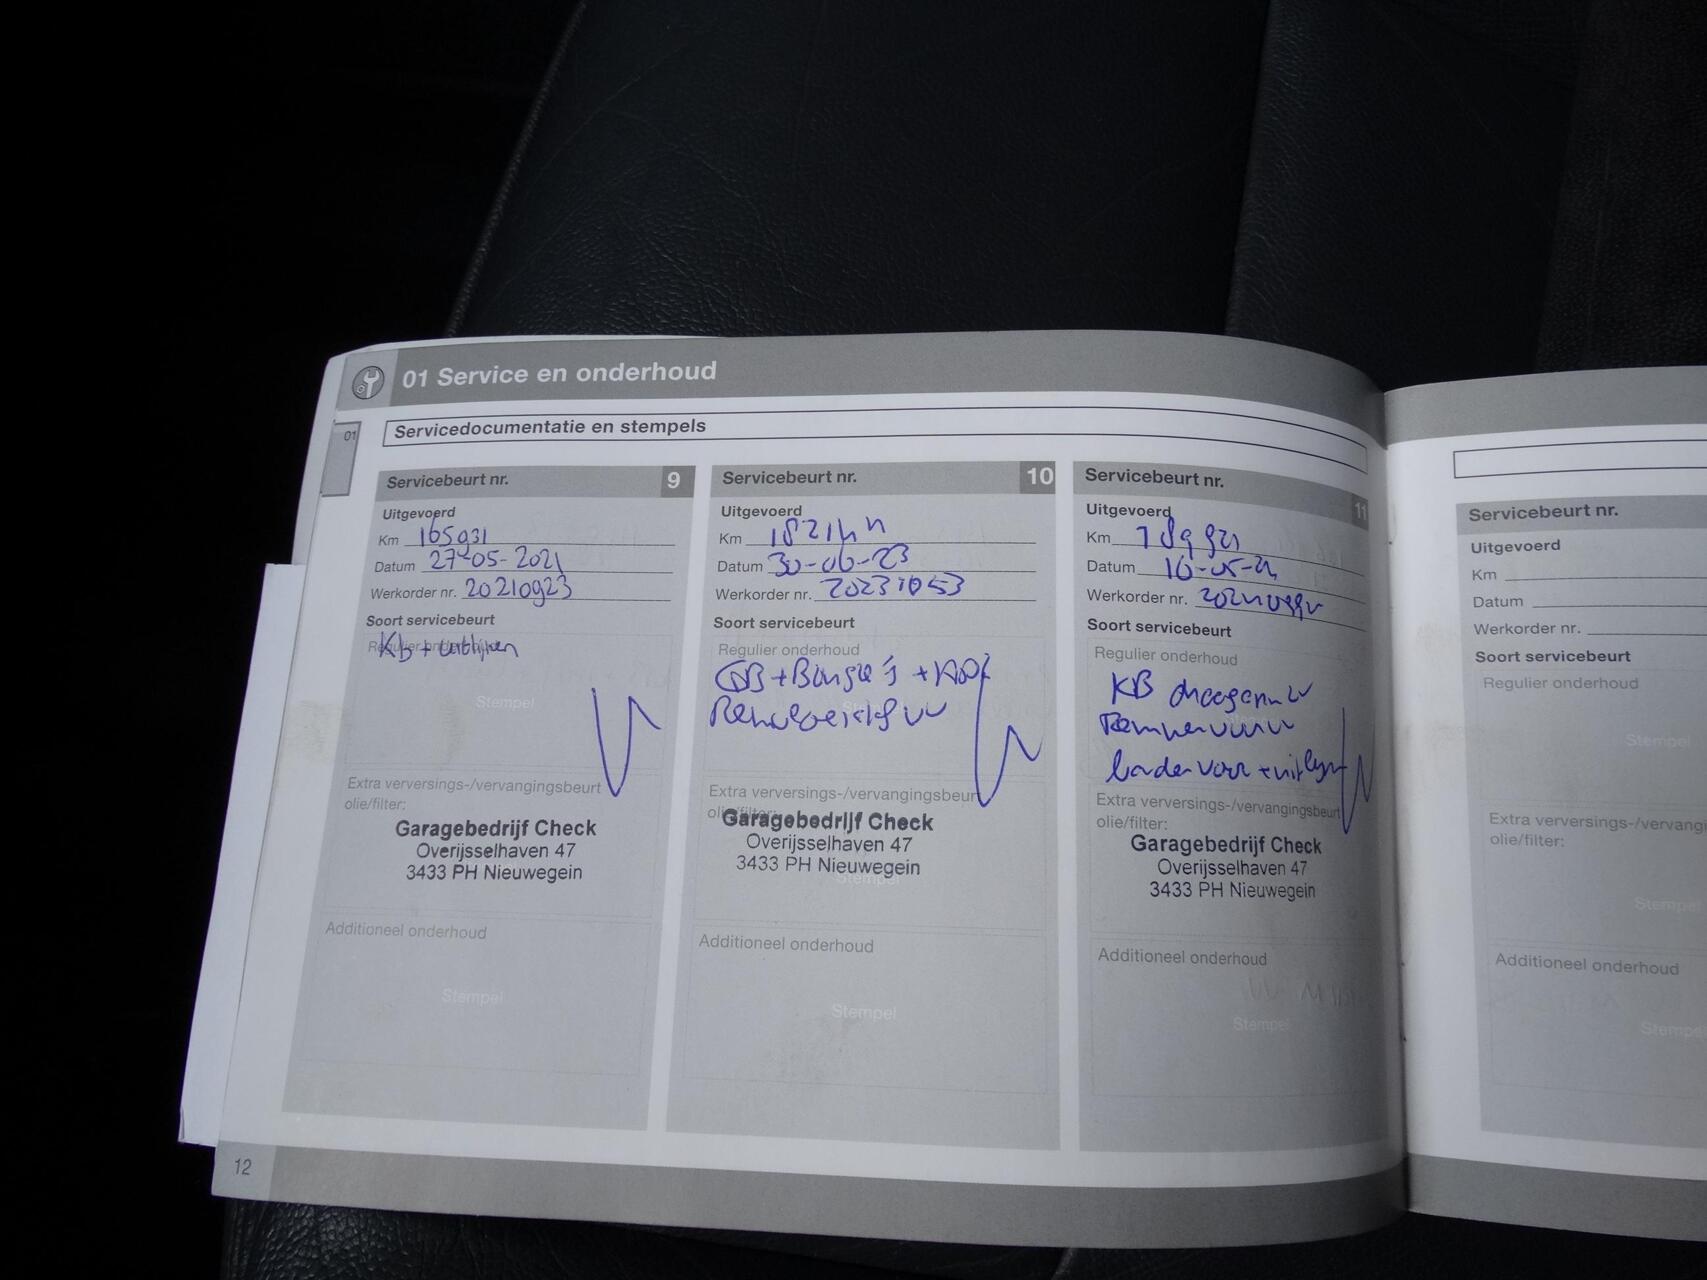 01 Service en onderhoud
01
Servicedocumentatie en stempels
Servicebeurt nr. 9
Uitgevoerd
Km 165931
Datum 27-05-2021
Werkorder nr. 20210923
Soort servicebeurt
Regulier onderhoud
KB +
Stempel
Extra verversings-/vervangingsbeurt
olie/filter:
Garagebedrijf Check
Overijsselhaven 47
3433 PH Nieuwegein
Additioneel onderhoud
Stempel
12
Servicebeurt nr. 10
Uitgevoerd
Km
Datum 30-06-23
Werkorder nr. 20231053
Soort servicebeurt
Regulier onderhoud
Extra verversings-/vervangingsbeurt
olie/filter:
Garagebedrijf Check
Overijsselhaven 47
3433 PH Nieuwegein
Stempel
Additioneel onderhoud
Stempel
Servicebeurt nr. 11
Uitgevoerd
Km
Datum
Werkorder nr.
Soort servicebeurt
Regulier onderhoud
KB
Extra verversings-/vervangingsbeurt
olie/filter:
Garagebedrijf Check
Overijsselhaven 47
3433 PH Nieuwegein
Additioneel onderhoud
Stempel
Servicebeurt nr.
Uitgevoerd
Km
Datum
Werkorder nr.
Soort servicebeurt
Regulier onderhoud
Stempel
Extra verversings-/vervangi
olie/filter:
Stempel
Additioneel onderhoud
Stempe